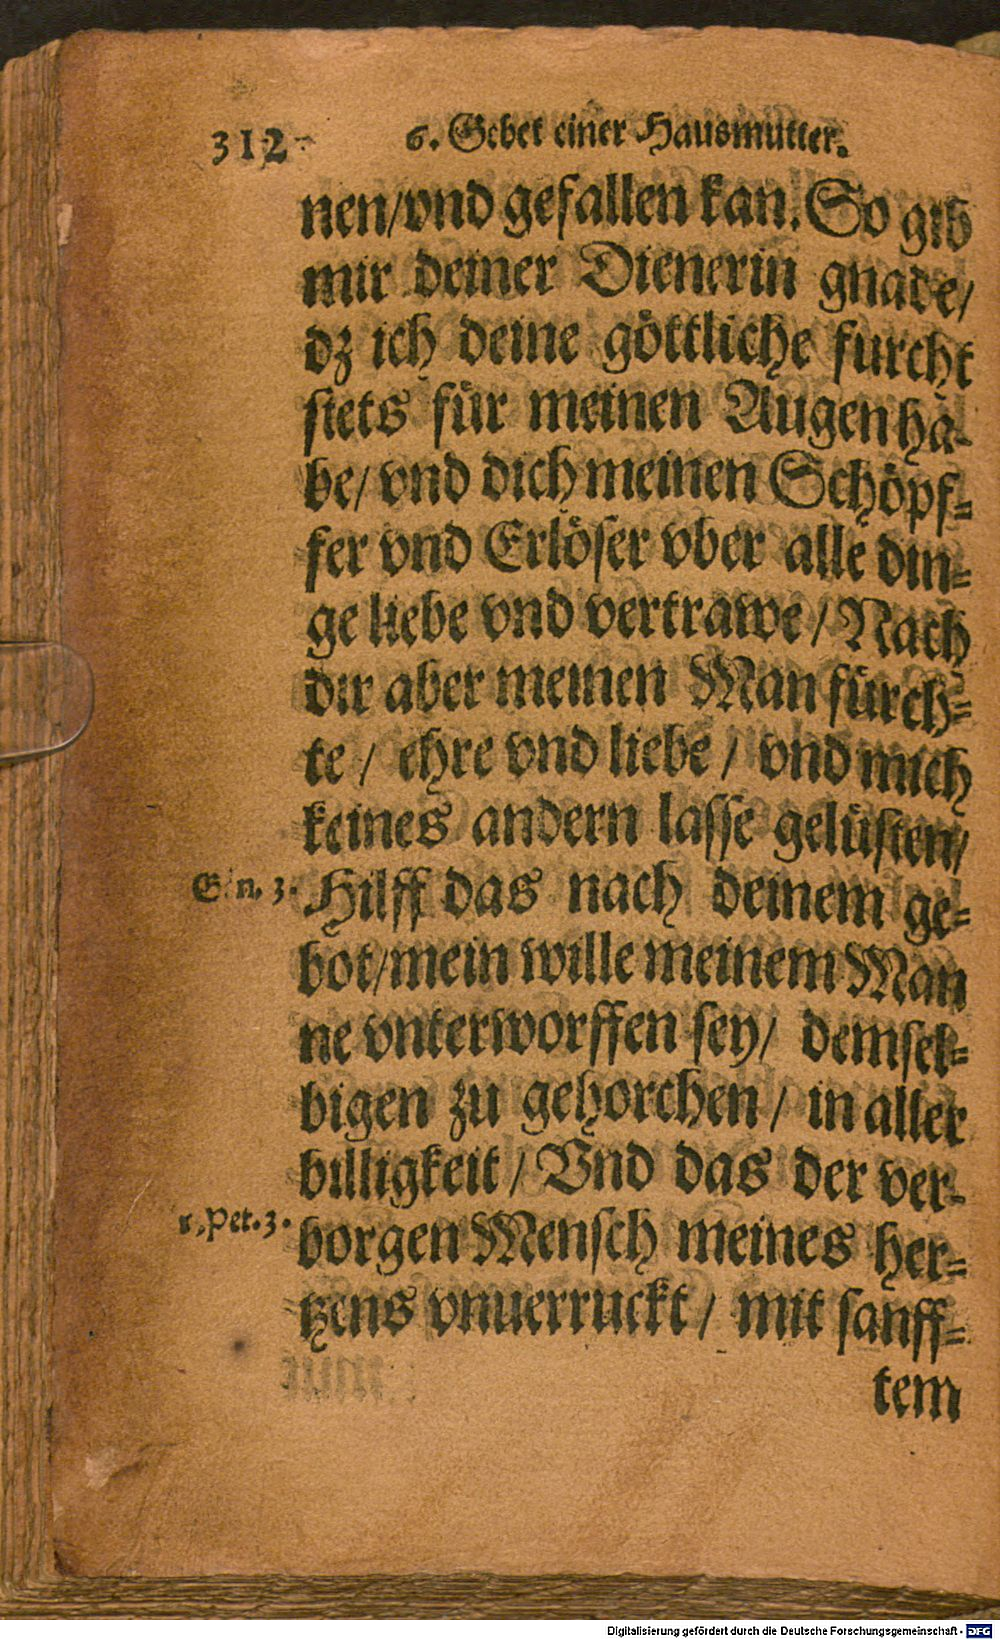 312
6. Gebet einer Hausmutter.
nen/vnd gefallen kan. So gib
mir deiner Dienerin gnade/
dz ich deine göttliche furcht
stets für meinen Augen ha-
be/ vnd dich meinen Schöpf-
fer vnd Erlöser vber alle din-
ge liebe vnd vertrawe / Nach
dir aber meinen Man fürch-
te / ehre vnd liebe / vnd mich
keines andern lasse gelüsten/
Gen. 3. Hilff das nach deinem ge-
bot/mein wille meinem Man
ne vnterworffen sey/ demsel-
bigen zu gehorchen / in aller
billigkeit / Vnd das der ver-
1. Pet. 3. borgen Mensch meines her-
tzens vnuerruckt / mit sanff-
tem
Digitalisierung gefördert durch die Deutsche Forschungsgemeinschaft - DFG